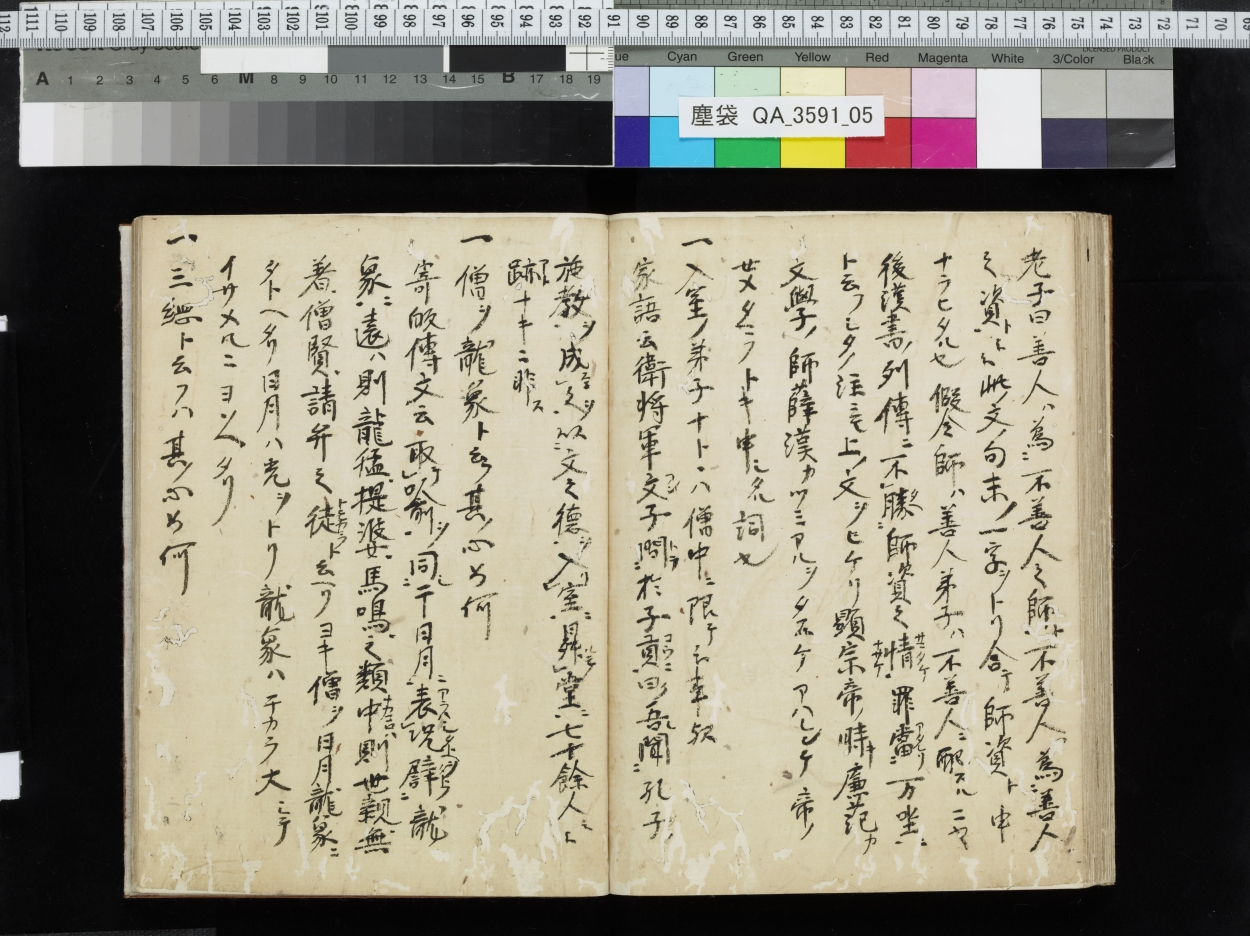 塵袋 QA_3591_05
Cyan Green Yellow Red Magenta White 3/Color Black
A 1 2 3 4 5 6 M 8 9 10 11 12 13 14 15 B 17 18 19
老子曰善人ハ為不善人之師不善人ハ為善人
之資ト云ヘリ此文ノ句末ノ一字ヲトリ合テ師資ト申
ナラヒタル也 假令師ハ善人弟子ハ不善人ニ配スルニヤ
後漢書ノ列傳ニ不勝師資之情罪當万坐
ト云フミタノ注ニモ上ノ文ヲヒケリ顕宗帝ノ時廉范カ
文學ノ師薛漢カツミアルヲタスケアハレミケ帝ノ
セメタマフトキ申シタル詞也
一 入室ノ弟子ナトハ僧中ニ限テ云事歟
家語云衛将軍文子問於子貢曰吾聞孔子ノ
施教ヲ成之以文之徳入室昇堂七十餘人ト
跡ナキニ非ス
一 僧ヲ龍象ト云フ其ノ心如何
寄皈傳文云取喩ヲ同干日月表況譬龍
象遠ハ則龍猛提婆馬鳴之類中則世親無
著僧賢請弁之徒ト云ヘリヨキ僧ヲ日月龍象ニ
タトヘタリ日月ハ光ヲトリ龍象ハチカラ大ニシテ
イサメルニヨソヘタリ
一 三綱ト云フハ其ノ心如何